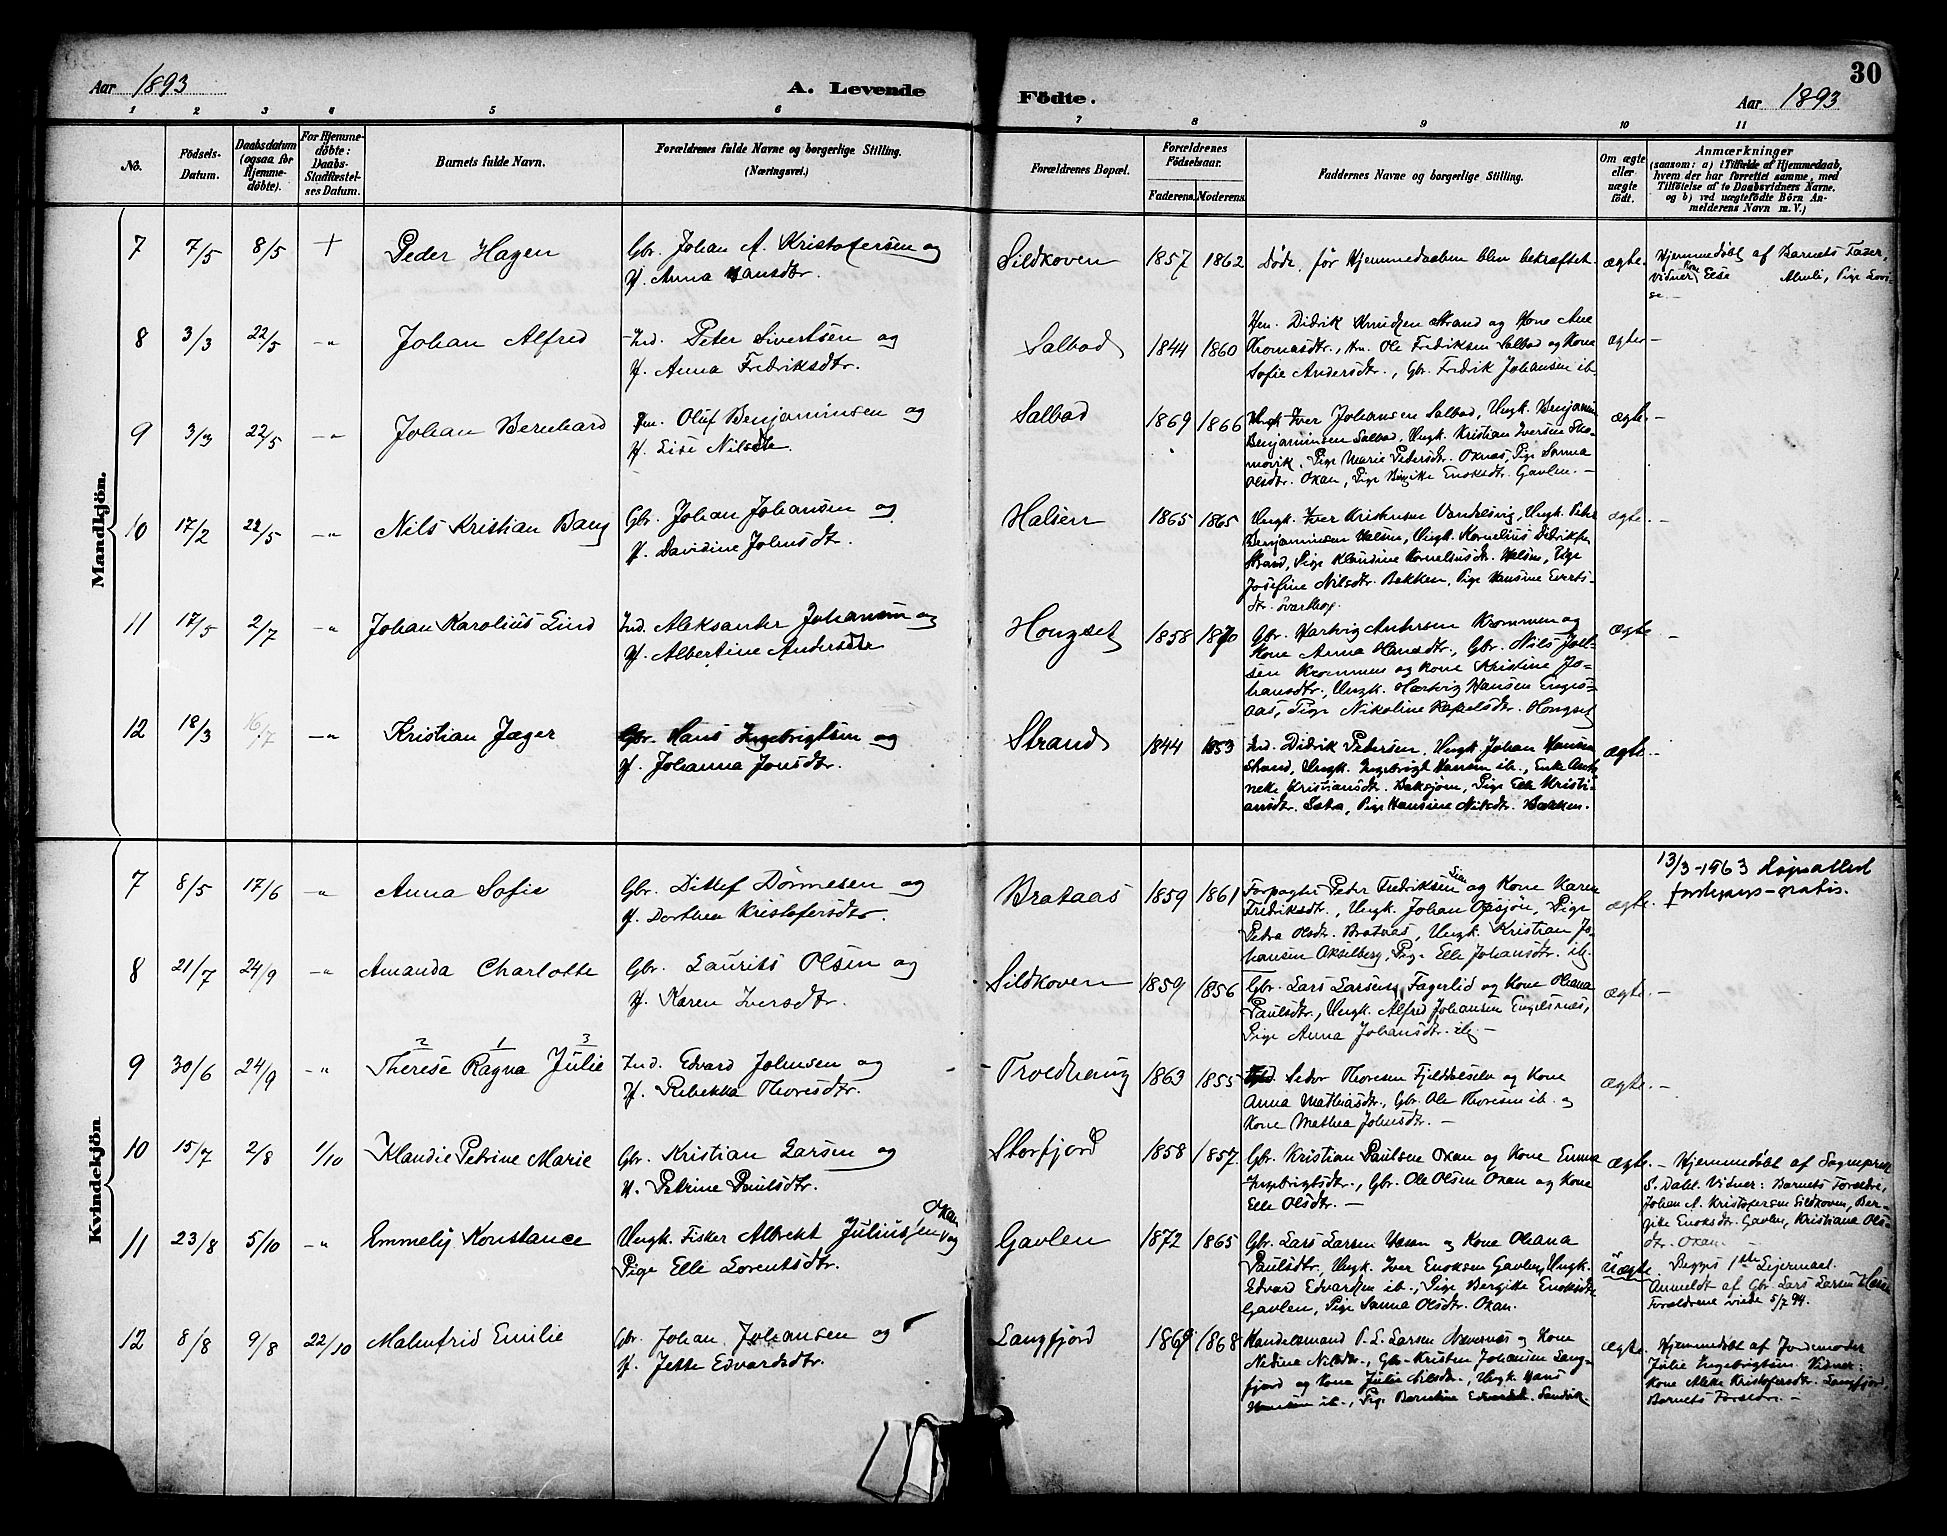 30
Aar 1893 A. Levende Födte. Aar 1893
1 2 3 4 5 6 7 8 9 10 11
No.
Födsels-
Datum.
Daabsdatum
(ogsaa for
Hjemme-
döbte).
For Hjemme-
döbte:
Daabs-
Stadfæstel-
ses Datum.
Barnets fulde Navn.
Forældrenes fulde Navne og borgerlige Stilling.
(Næringsvei.)
Forældrenes Bopæl.
Forældrenes
Födselsaar.
Faderens. Moderens.
Faddernes Navne og borgerlige Stilling.
Om ægte
eller
uægte
födt.
Anmærkninger
(saasom: a) i Tilfælde af Hjemmedaab,
hvem der har forrettet samme, med
Tilföielse af to Daabsvidners Navne.
og b) ved uægtefödte Börn An-
melderens Navn m. V.)
Mandkjön.
7 7/5 8/5 + Peder Hagen
Gbr. Johan A. Kristofersen og
H. Anna Hansdtr.
Sildkoven 1857 1862
Døde før Hjemmedaaben blev bekræftet.
ægte.
Hjemmedøbt af Barnets Fader,
Vidner Kone Else Almli, Pige Lovi-
se.-
8 3/3 22/5 -"- Johan Alfred
Ind. Peter Sivertsen og
H. Anna Fredriksdtr.
Salbad 1844 1860
Didrik Knudsen Strand og Kone Ane
Thomasdtr., Ole Fredriksen Salbad og Kone
Sofie Andersdtr., Gbr. Fredrik Johansen ib.
ægte -
9 3/3 22/5 -"- Johan Bernhard
Oluf Benjaminsen og
H. Lise Nilsdtr.
Salbad 1869 1866
Ungk. Iver Johansen Salbad, Ungk. Benjamin
Benjaminsen Salbad, Ungk. Kristian Iversen
Pige Marie Pedersdtr. Oknas, Pige Sanna
Olsdtr. Oxan, Pige Enoksdtr. Gavlen. -
ægte. -
10 17/2 22/5 -"- Nils Kristian Bang
Gbr. Johan Johansen og
H. Davidine Johnsdtr.
Halsen 1865 1865
Ungk. Iver Kristensen Ungk. Peter
Benjaminsen Halsen, Ungk. Kornelius Didriksen
Strand, Pige Klaudine Korneliusdtr. Halsen, Pige
Josefine Nilsdtr. Bakken, Pige Hansine Everts-
dtr.
ægte. -
11 17/5 2/7 -"- Johan Karolius Lind
Ind. Aleksander Johansen og
H. Albertine Andersdtr
Hongset 1858 1870
Gbr. Hartvig Andersen Krommen og
Kone Anna Hansdtr., Gbr. Nils
Krommen og Kone Kristine Jo-
hansdtr., Ungk. Hartvig Hansen
Pige Nikoline Hongset
ægte -
12 18/3 16/7 -"- Kristian Jæger
Gbr. Hans Ingebrigtsen og
H. Johanna Jonsdtr.
Strand 1844 1853
Ind. Didrik Petersen, Ungk. Johan Hansen
Strand, Ungk. Ingebrigt Hansen ib., Enke
Kristiansdtr. Baksjøen, Pige Elle Kristi-
ansdtr. Pige Hansine Nilsdtr. Bakken.
ægte. -
Kvindekjön
7 8/5 17/6 -"- Anna Sofie
Gbr. Ditlef Dønnesen og
H. Dorthea Kristofersdtr.
Brataas 1859 1861
Forpagter Peter Fredriksen og Kone Karen
Fredriksdtr., Ungk. Johan Pige
Petra Olsdtr. Brataas, Ungk. Kristian Jo-
hansen Pige Elle Johansdtr. ib.
ægte.
13/3-1963
gratis.
8 21/7 24/9 -"- Amanda Charlotte
Gbr. Laurits Olsen og
H. Karen Iversdtr.
Sildkoven 1859 1856
Gbr. Lars Larsen Fagerlid og Kone Oleana
Paulsdtr., Ungk. Alfred Johansen Engelsnes,
Pige Anna Johansdtr. ib. -
ægte. -
9 30/6 24/9 -"- Therese Ragna Julie
2 1 3
Ind. Edvard Johnsen og
H. Rebekka Thoresdtr.
Troldhaug 1863 1855
Thoresen og Kone
Anna Mathiasdtr., Gbr. Ole Thoresen ib. og
Kone Mathea Johnsdtr. -
ægte. -
10 15/7 2/8 1/10 Klaudie Petrine Marie
Gbr. Kristian Larsen og
H. Petrine Paulsdtr.
Storfjord 1858 1857.
Gbr. Kristian Paulsen Oxan og Kone Emma
Ingebrigtsdtr., Gbr. Ole Olsen Oxan og Kone
Elle Olsdtr. -
ægte.
- Hjemmedøbt af Sognepræst
S. Dahl. Vidner: Barnets Forældre,
Johan A. Kristofersen Sildkoven, Ber-
gike Enoksdtr. Gavlen, Kristiana Ols-
dtr. Oxan
11 23/8 5/10 -"- Emmely Konstance
Ungk. Fisker Albrekt Juliussen Oxan og
Pige Elle Lorentsdtr.
Gavlen 1872 1865
Gbr. Lars Larsen og Kone Oleana
Paulsdtr., Ungk. Iver Enoksen Gavlen, Ungk.
Edvard Edvardsen ib., Pige Bergike Enoksdtr.
Gavlen, Pige Sanna Olsdtr. Oxan.
uægte.
Begges 1ste Leiermaal.
Anmeldt af Gbr. Lars Larsen
Forældrene viede 5/7 94.
12 8/8 9/8 22/10 Malenfrid Emilie
Gbr. Johan Johansen og
H. Jette Edvardsdtr.
Langfjord 1869 1868
Handelsmand P. L. Larsen Nævernes og Kone
Nedine Nilsdtr., Gbr. Kristen Johansen Lang-
fjord og Kone Julie Nilsdtr., Ungk. Hans
Hansen ib., Pige Berntine Edvardsdt.
ægte.
Hjemmedøbt af Jordemoder
Julie Ingebrigtsen. Vidner:
Kone Kristofersdtr. Langfjord,
Barnets Forældre. -